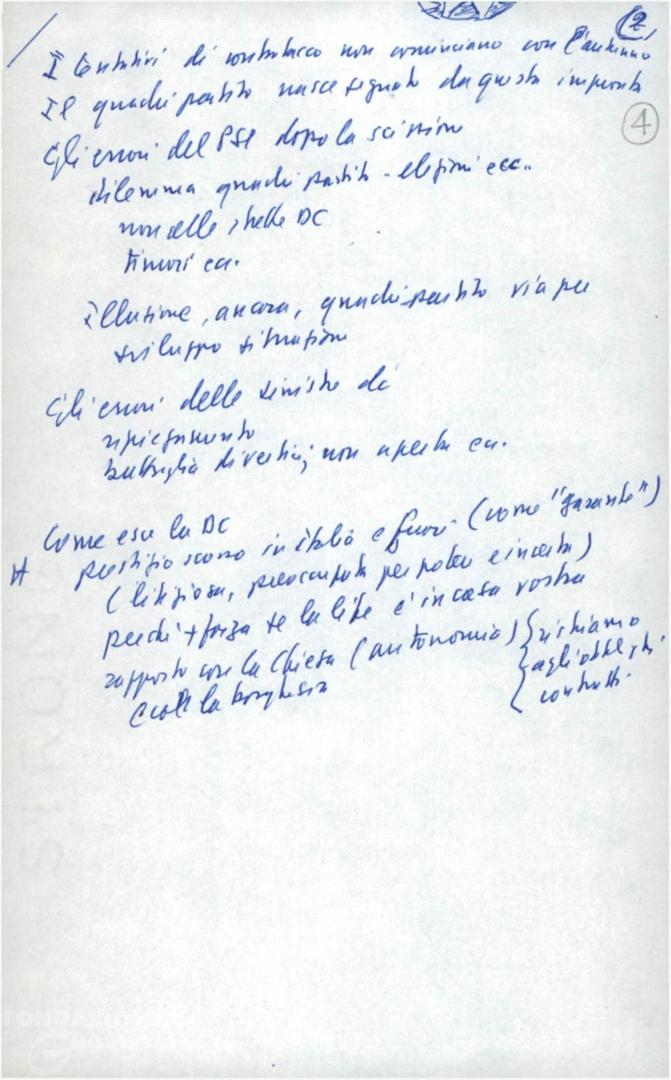 2
I tentativi di contrattacco non cominciano con l'autunno
Il quadripartito nasce segnato da questa impronta
4
Gli errori del PSI dopo la scissione
dilemma quadripartito - elezioni ecc..
non delle scelte DC
timori ec.
illusione, ancora, quadripartito via per
sviluppo situazione
Gli errori delle sinistre dc
ripiegamento
battaglia diversa, non aperta ec.
Come esce la DC
prestigio scosso in italia e fuori (come "garante")
(litigiosa, preoccupata per potere e incerta)
perché + forza se la lite è in casa vostra
rapporto con la Chiesa (autonomia) { richiamo
e colla borghesia
agli obblighi
contratti.